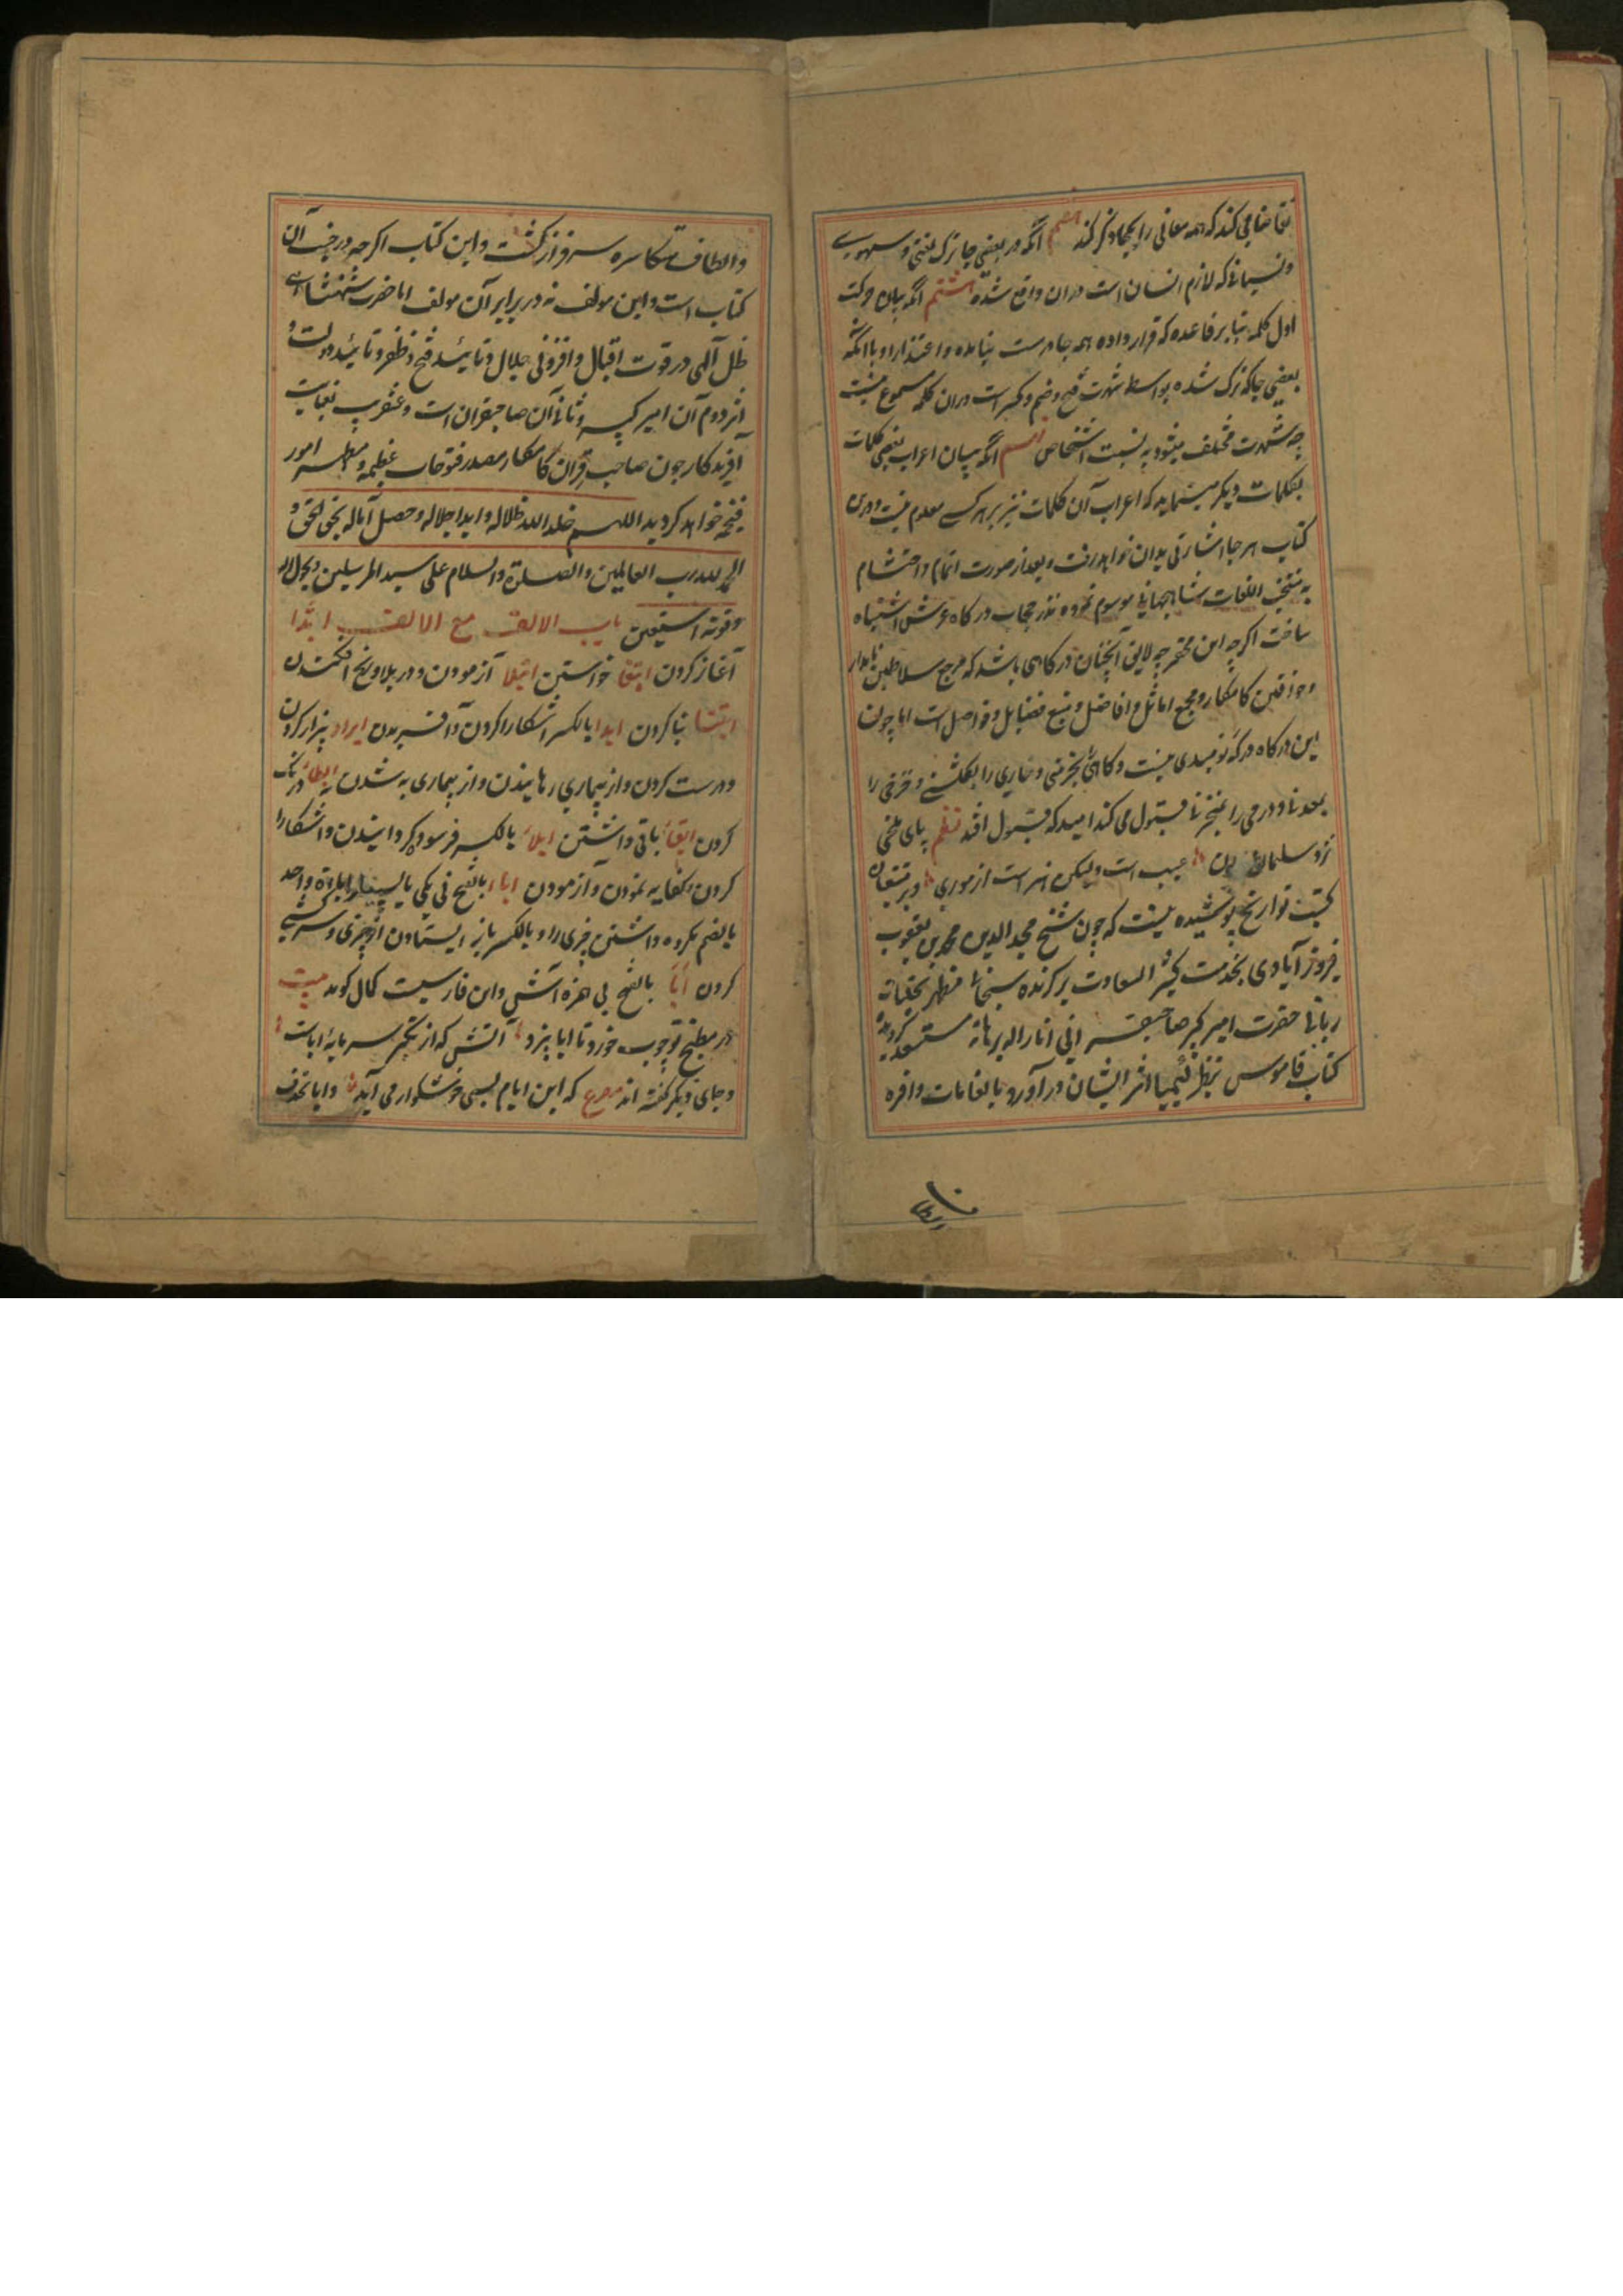 تقاضا می کند که همه معانی را یکجا ذکر کند انکه در بعضی جا ترک لغتی و سهوے
ونسیانی که لازم انسان است دران واقع شده هشتم انکه بیان حرکت
اول کلمه بنا بر قاعده که قرار داده همه جا درست نیامده و اعتذار او باانکه
بعضی جا که ترک شده بواسطه شهرت فتح وضم وکسر است دران کلمه مسموع نیست
چه شهرت مختلف میشود به نسبت اشخاص انکه بیان اعراب بعضی کلمات
بکلمات دیکر مینماید که اعراب آن کلمات نیز بر هرکسے معلوم نیست ودرین
کتاب هر جا اشارتی بدان خواهد رفت وبعد از صورت اتمام واختتام
به منتخب اللغات شاهجهانی موسوم نموده نذر حجاب درکاه عرش اشتباه
ساخت اکرچه این مختصر چه لایق آنچنان درکاهی باشد که مرجع سلاطین نامدار
وخواقین کامکار ومجمع اماثل وافاضل ومنبع فضایل وفواضل است اما چون
این درکاه درکه نومیدی نیست وکاهی بخرمنی وخاری را بکلشنے وخزفی را
بمعدنی ودرمی را بمخزنی قبول می کند امید که قبول افتد نظم پای ملخی
نزد سلیمان بردن عیب است ولیکن هنر است از موری وبر متتبعان
کتب تواریخ پوشیده نیست که چون شیخ مجد الدین محمد بن یعقوب
فیروز آبادی بخدمت کثیر السعادت برکزیده سبحانی مظهر تجلیات
ربانی حضرت امیر کبیر صاحبقرانی انار الله برهانه مستسعد کردیده
کتاب قاموس بنظر کیمیا اثر ایشان در آورد بانعامات وافره
والطاف متکاثره سرفراز کشت واین کتاب اکرچه در جنب آن
کتاب است واین مولف نه در برابر آن مولف اما حضرت شهنشاهے
ظل آلهی در قوت اقبال وافزونی جلال وتائید فتح وظفر وتائید دولت و
اثر دوم آن امیر کبیر وثانی آن صاحبقران است وعنقریب بعنایت
آفریدکار چون صاحب قران کامکار مصدر فتوحات عظیمه ومظهر امور
فخیمه خواهد کردید اللهم خلد الله ظلاله وابد اجلاله وحصل آماله بحق الحق و
الحمد لله رب العالمین والصلوة والسلام علی سید المرسلین وبحول الله
وقوته استعین باب الالف مع الالف ابتدا
آغاز کردن ابتغا خواستن ابتلا آزمودن ودر بلا ورنج افکندن
ابتنا بنا کردن ابدا بالکسر اشکارا کردن وآفریدن ابراد بیزار کردن
ودرست کردن واز بیماری رهانیدن واز بیماری به شدن ابطاء درنک
کردن ابقاء باقی داشتن ابلاء بالکسر فرسوده کردانیدن واشکارا
کردن وکفایه نمودن وآزمودن اباء بالفتح نی یکی
بالضم مکروه داشتن چیزی را وبالکسر باز ایستادن از چیزی وسرکشی
کردن اَبَا بالفتح بی همزه آتش واین فارسیت کمال کوید بیت
در مطبخ تو چوب خورد تا ابا پزد آتش که از تکبر سرمایۀ ابات
وجای دیکر کفته اند مصرع که این ایام بسی خوشکوار می آید وابا بحذف